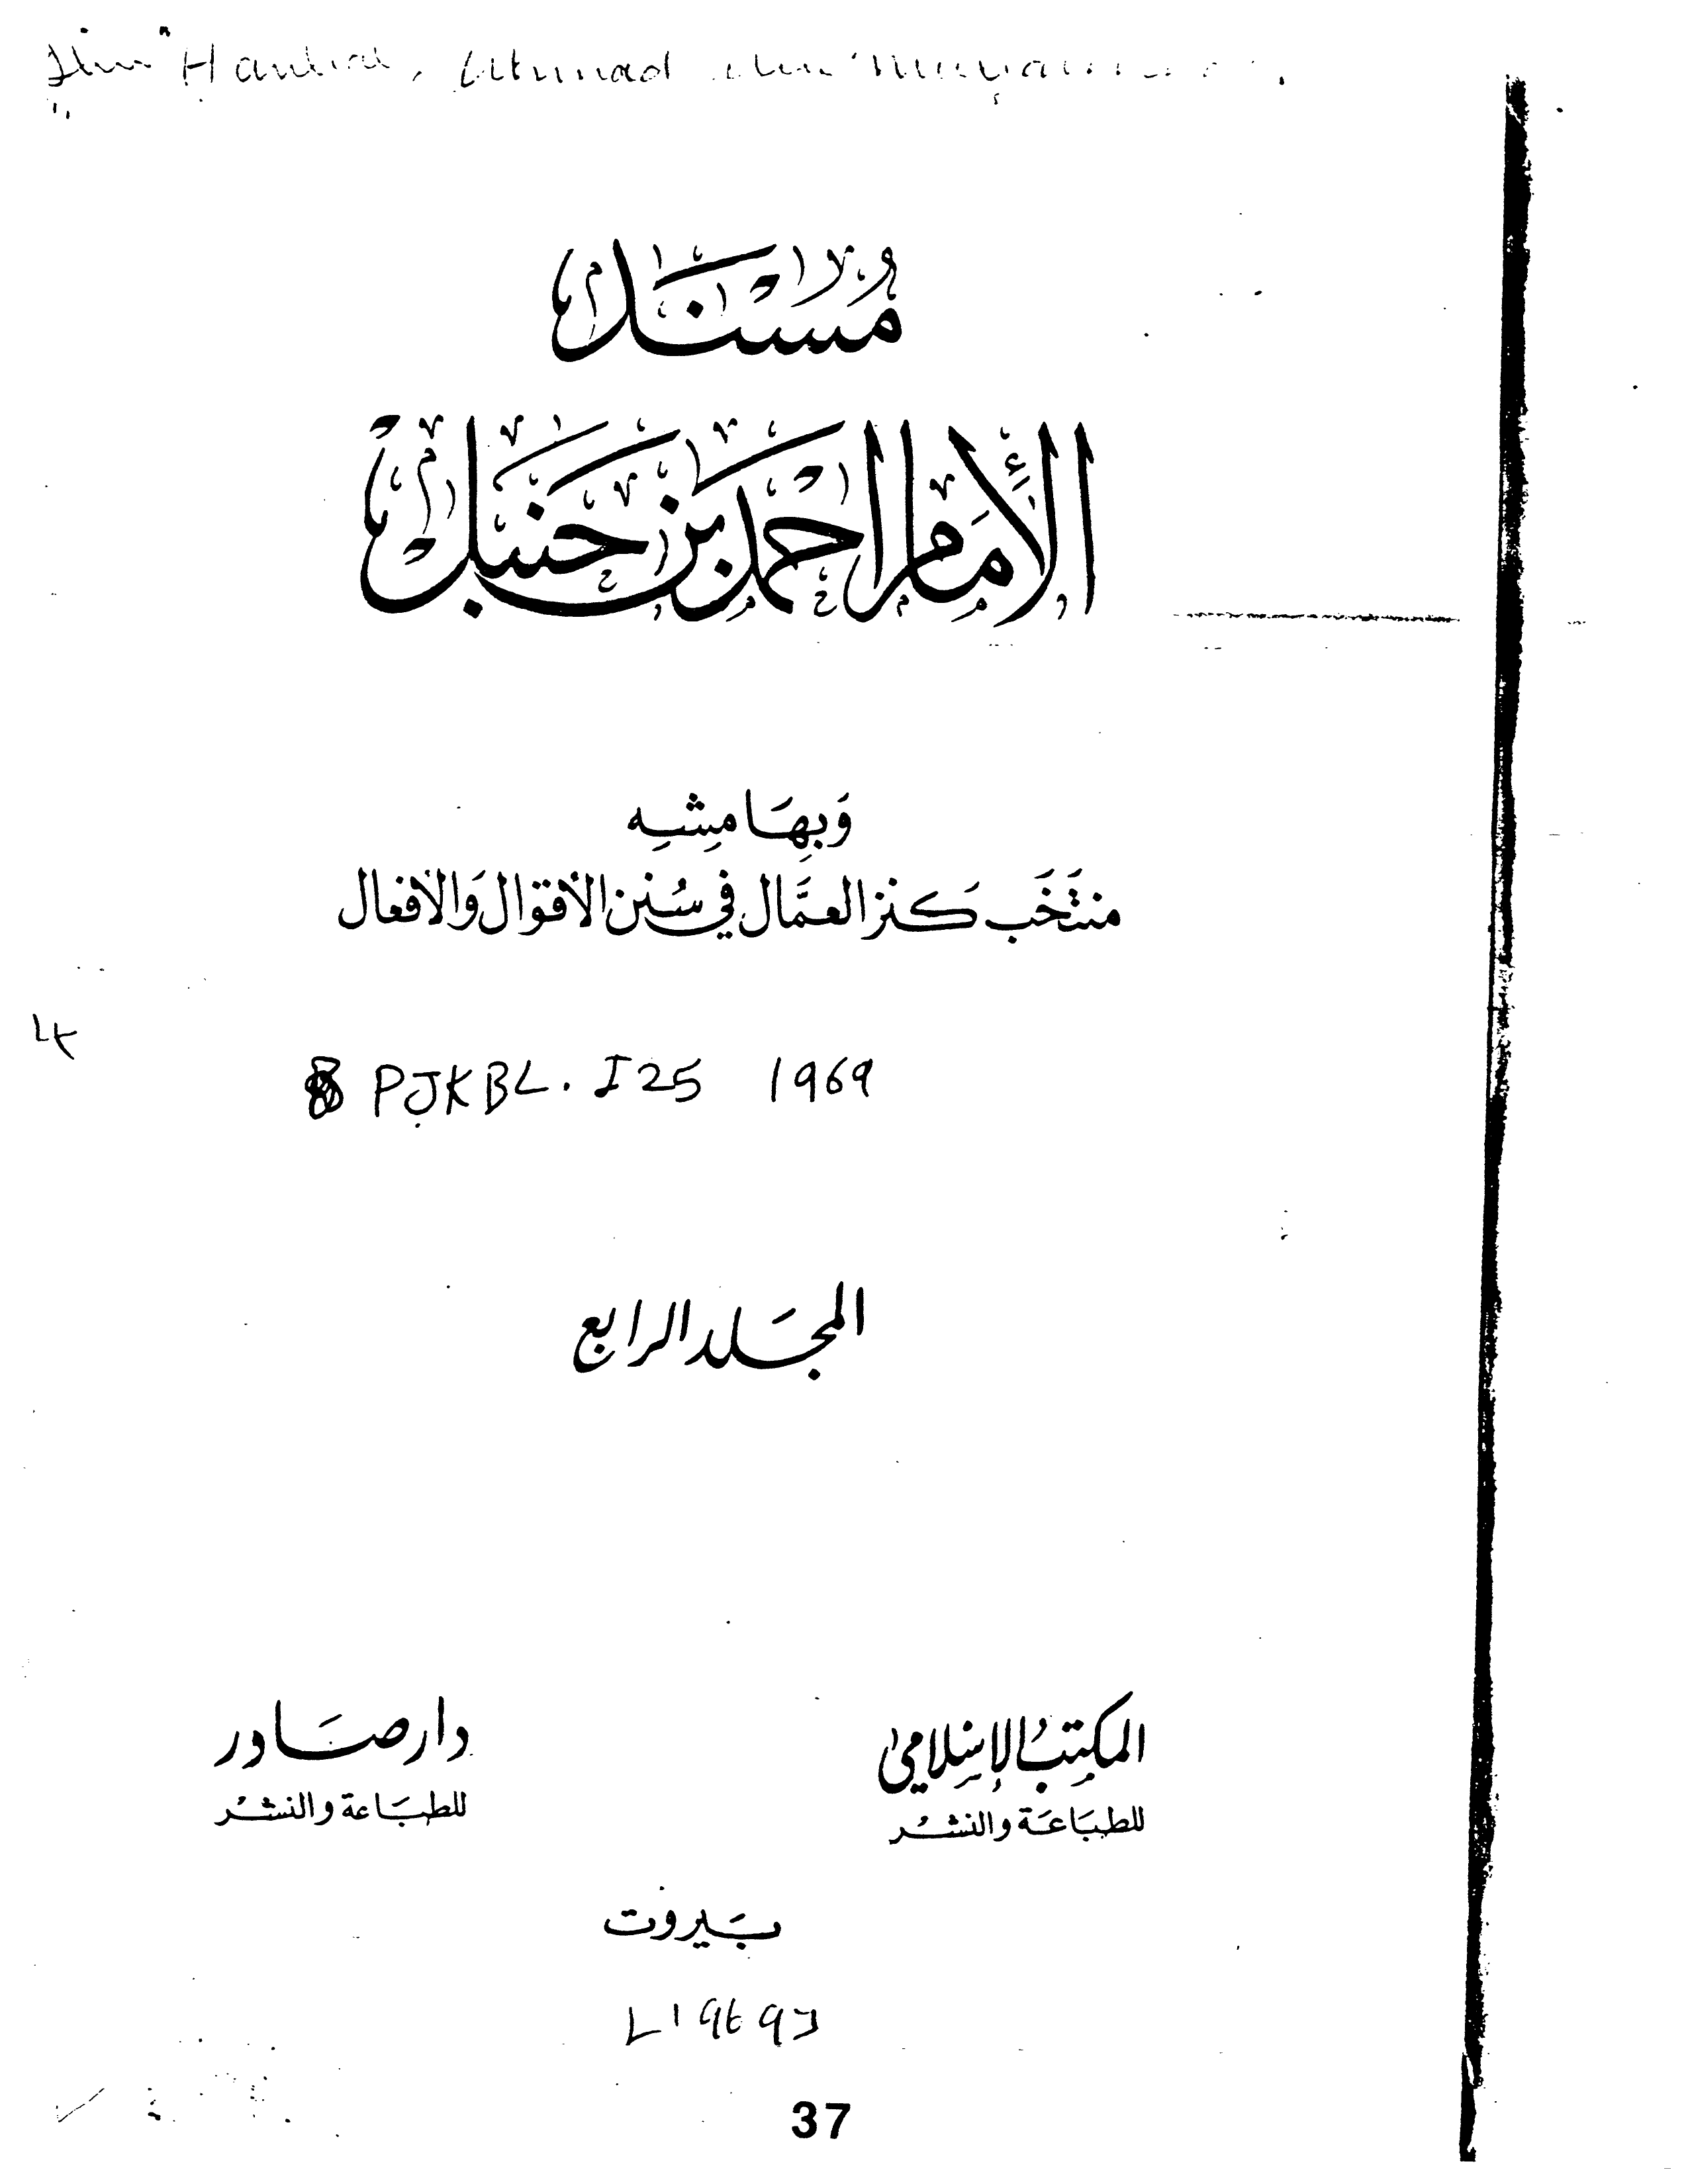 Hanbal, Ahmad
مُسْنَد
الإِمَام احمَد بن حَنبَل
وَبِهَامِشِه
منتَخَب كَنز العمَّال في سُنن الأقوَال وَالأفعال
PJKBL. I25 1969
المجَلد الرابع
المكتبُ الإسْلامي
دار صَادر
للطبَاعَة والنشْر
للطبَاعة والنشْر
بَيروت
[1969]
37